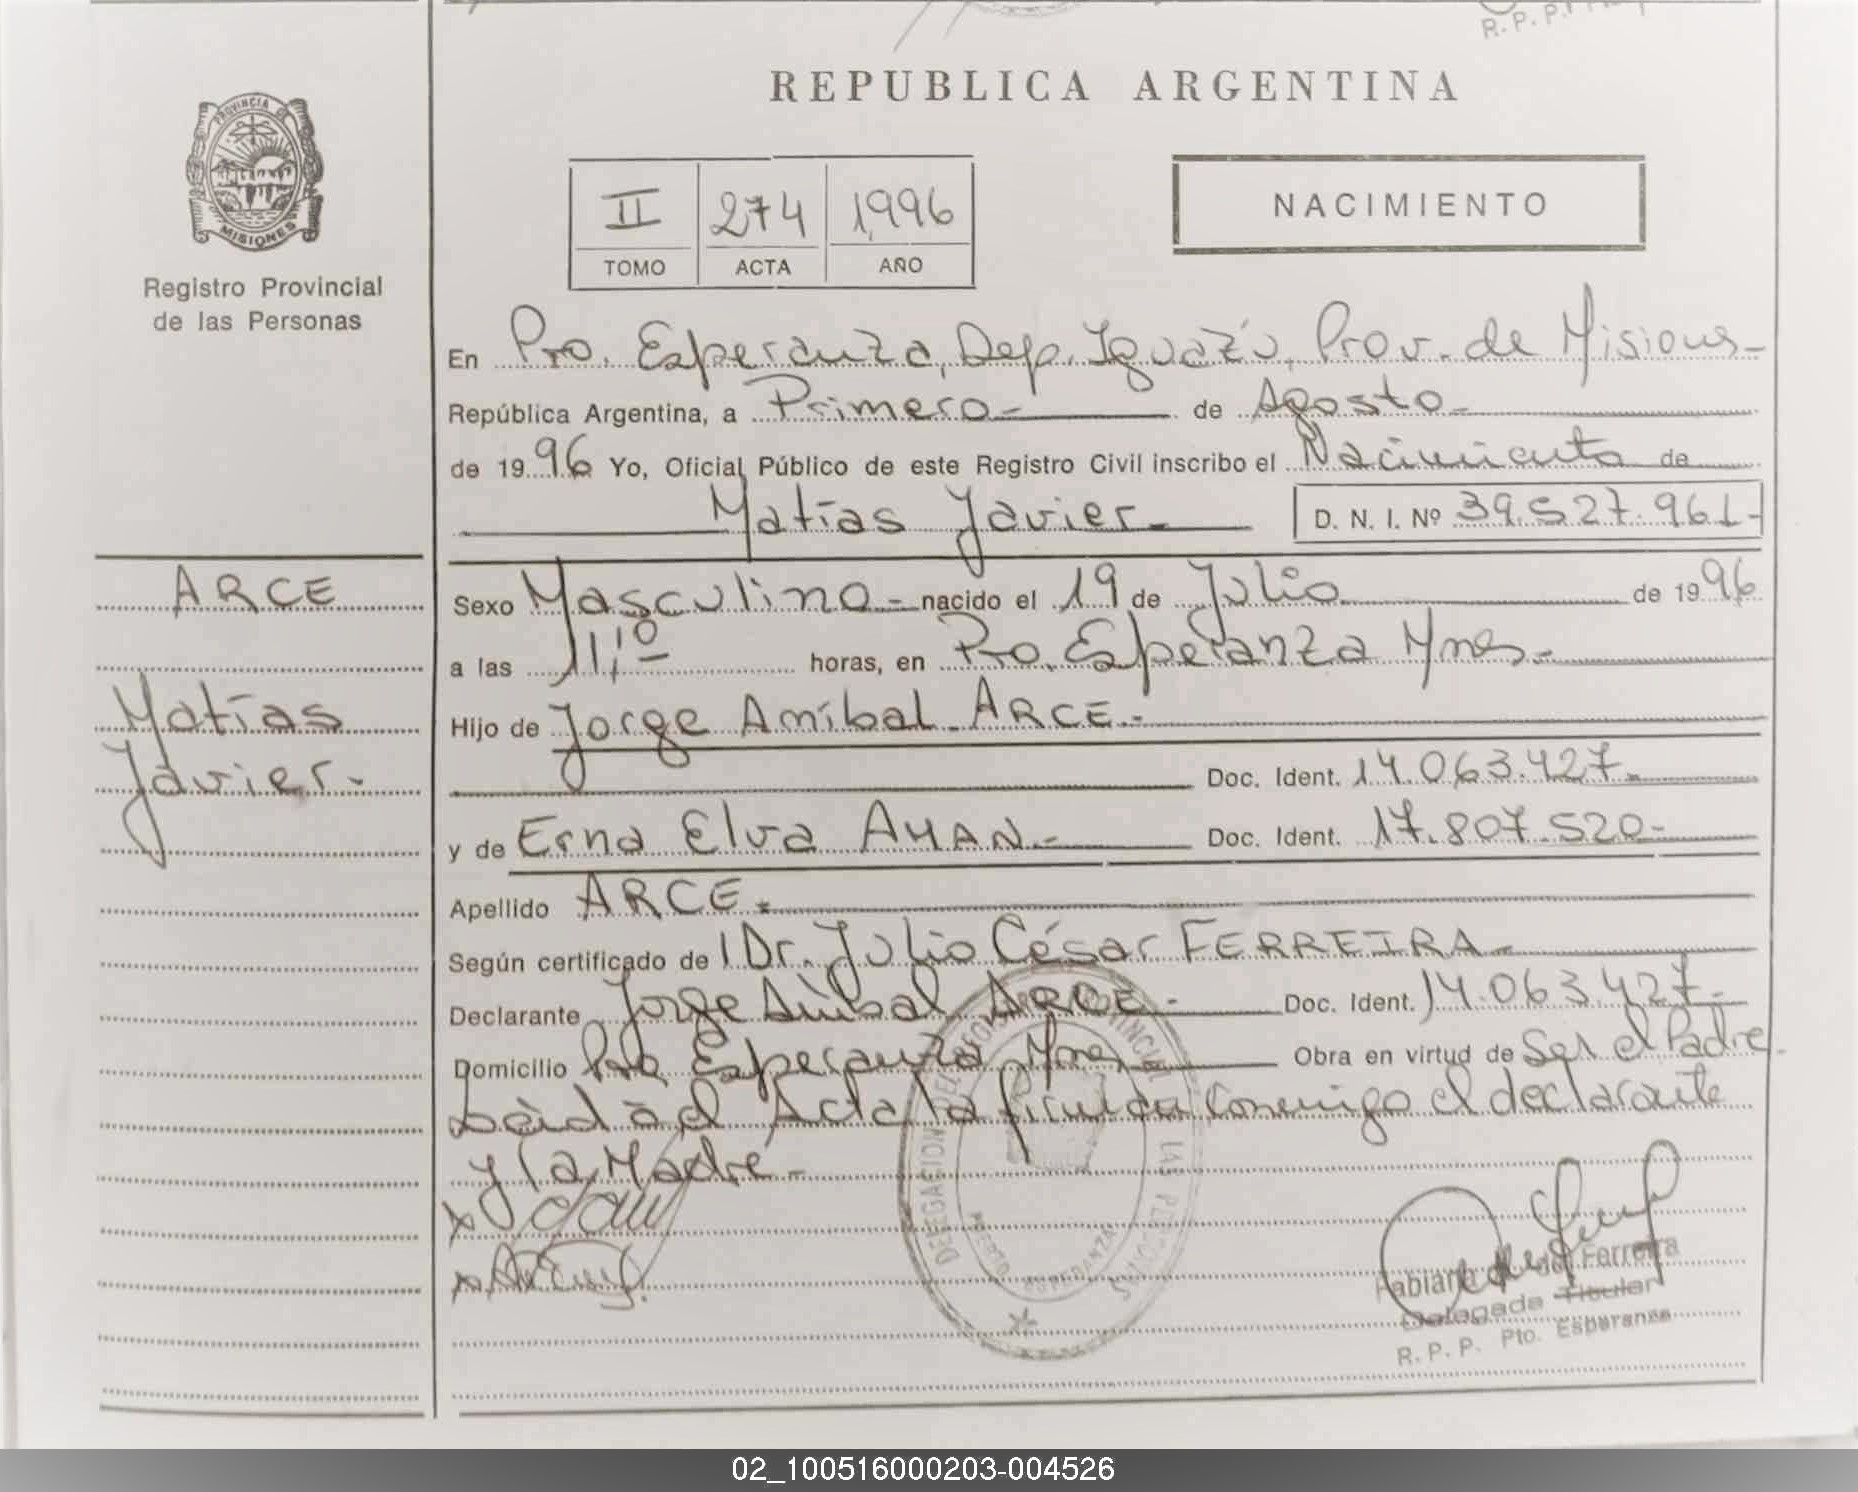 R. P. P.
REPUBLICA ARGENTINA
PROVINCIA DE
MISIONES
Registro Provincial
de las Personas
II 274 1996
TOMO ACTA AÑO
NACIMIENTO
En Pto. Esperanza, Dep. Iguazú, Prov. de Misiones-
República Argentina, a Primero- de Agosto-
de 1996 Yo, Oficial Público de este Registro Civil inscribo el Nacimiento de
Matías Javier.- D. N. I. Nº 39.527.961-
ARCE
Matías
Javier.-
Sexo Masculino- nacido el 19 de Julio de 1996
a las 11,º horas, en Pto. Esperanza Mnes.-
Hijo de Jorge Aníbal ARCE.-
Doc. Ident. 14.063.427.-
y de Erna Elva AMAN.- Doc. Ident. 17.807.520-
Apellido ARCE.-
Según certificado de Dr. Julio César FERREIRA-
Declarante Jorge Aníbal ARCE- Doc. Ident. 14.063.427-
Domicilio Pto Esperanza Mnes Obra en virtud de Ser el Padre-
Leída el Acta la firman conmigo el declarante
y la Madre.-
DELEGACION DEL REGISTRO PROVINCIAL DE LAS PERSONAS
PUERTO ESPERANZA
Fabiana del Ferreira
Delegada Titular
R. P. P. Pto. Esperanza
02_100516000203-004526